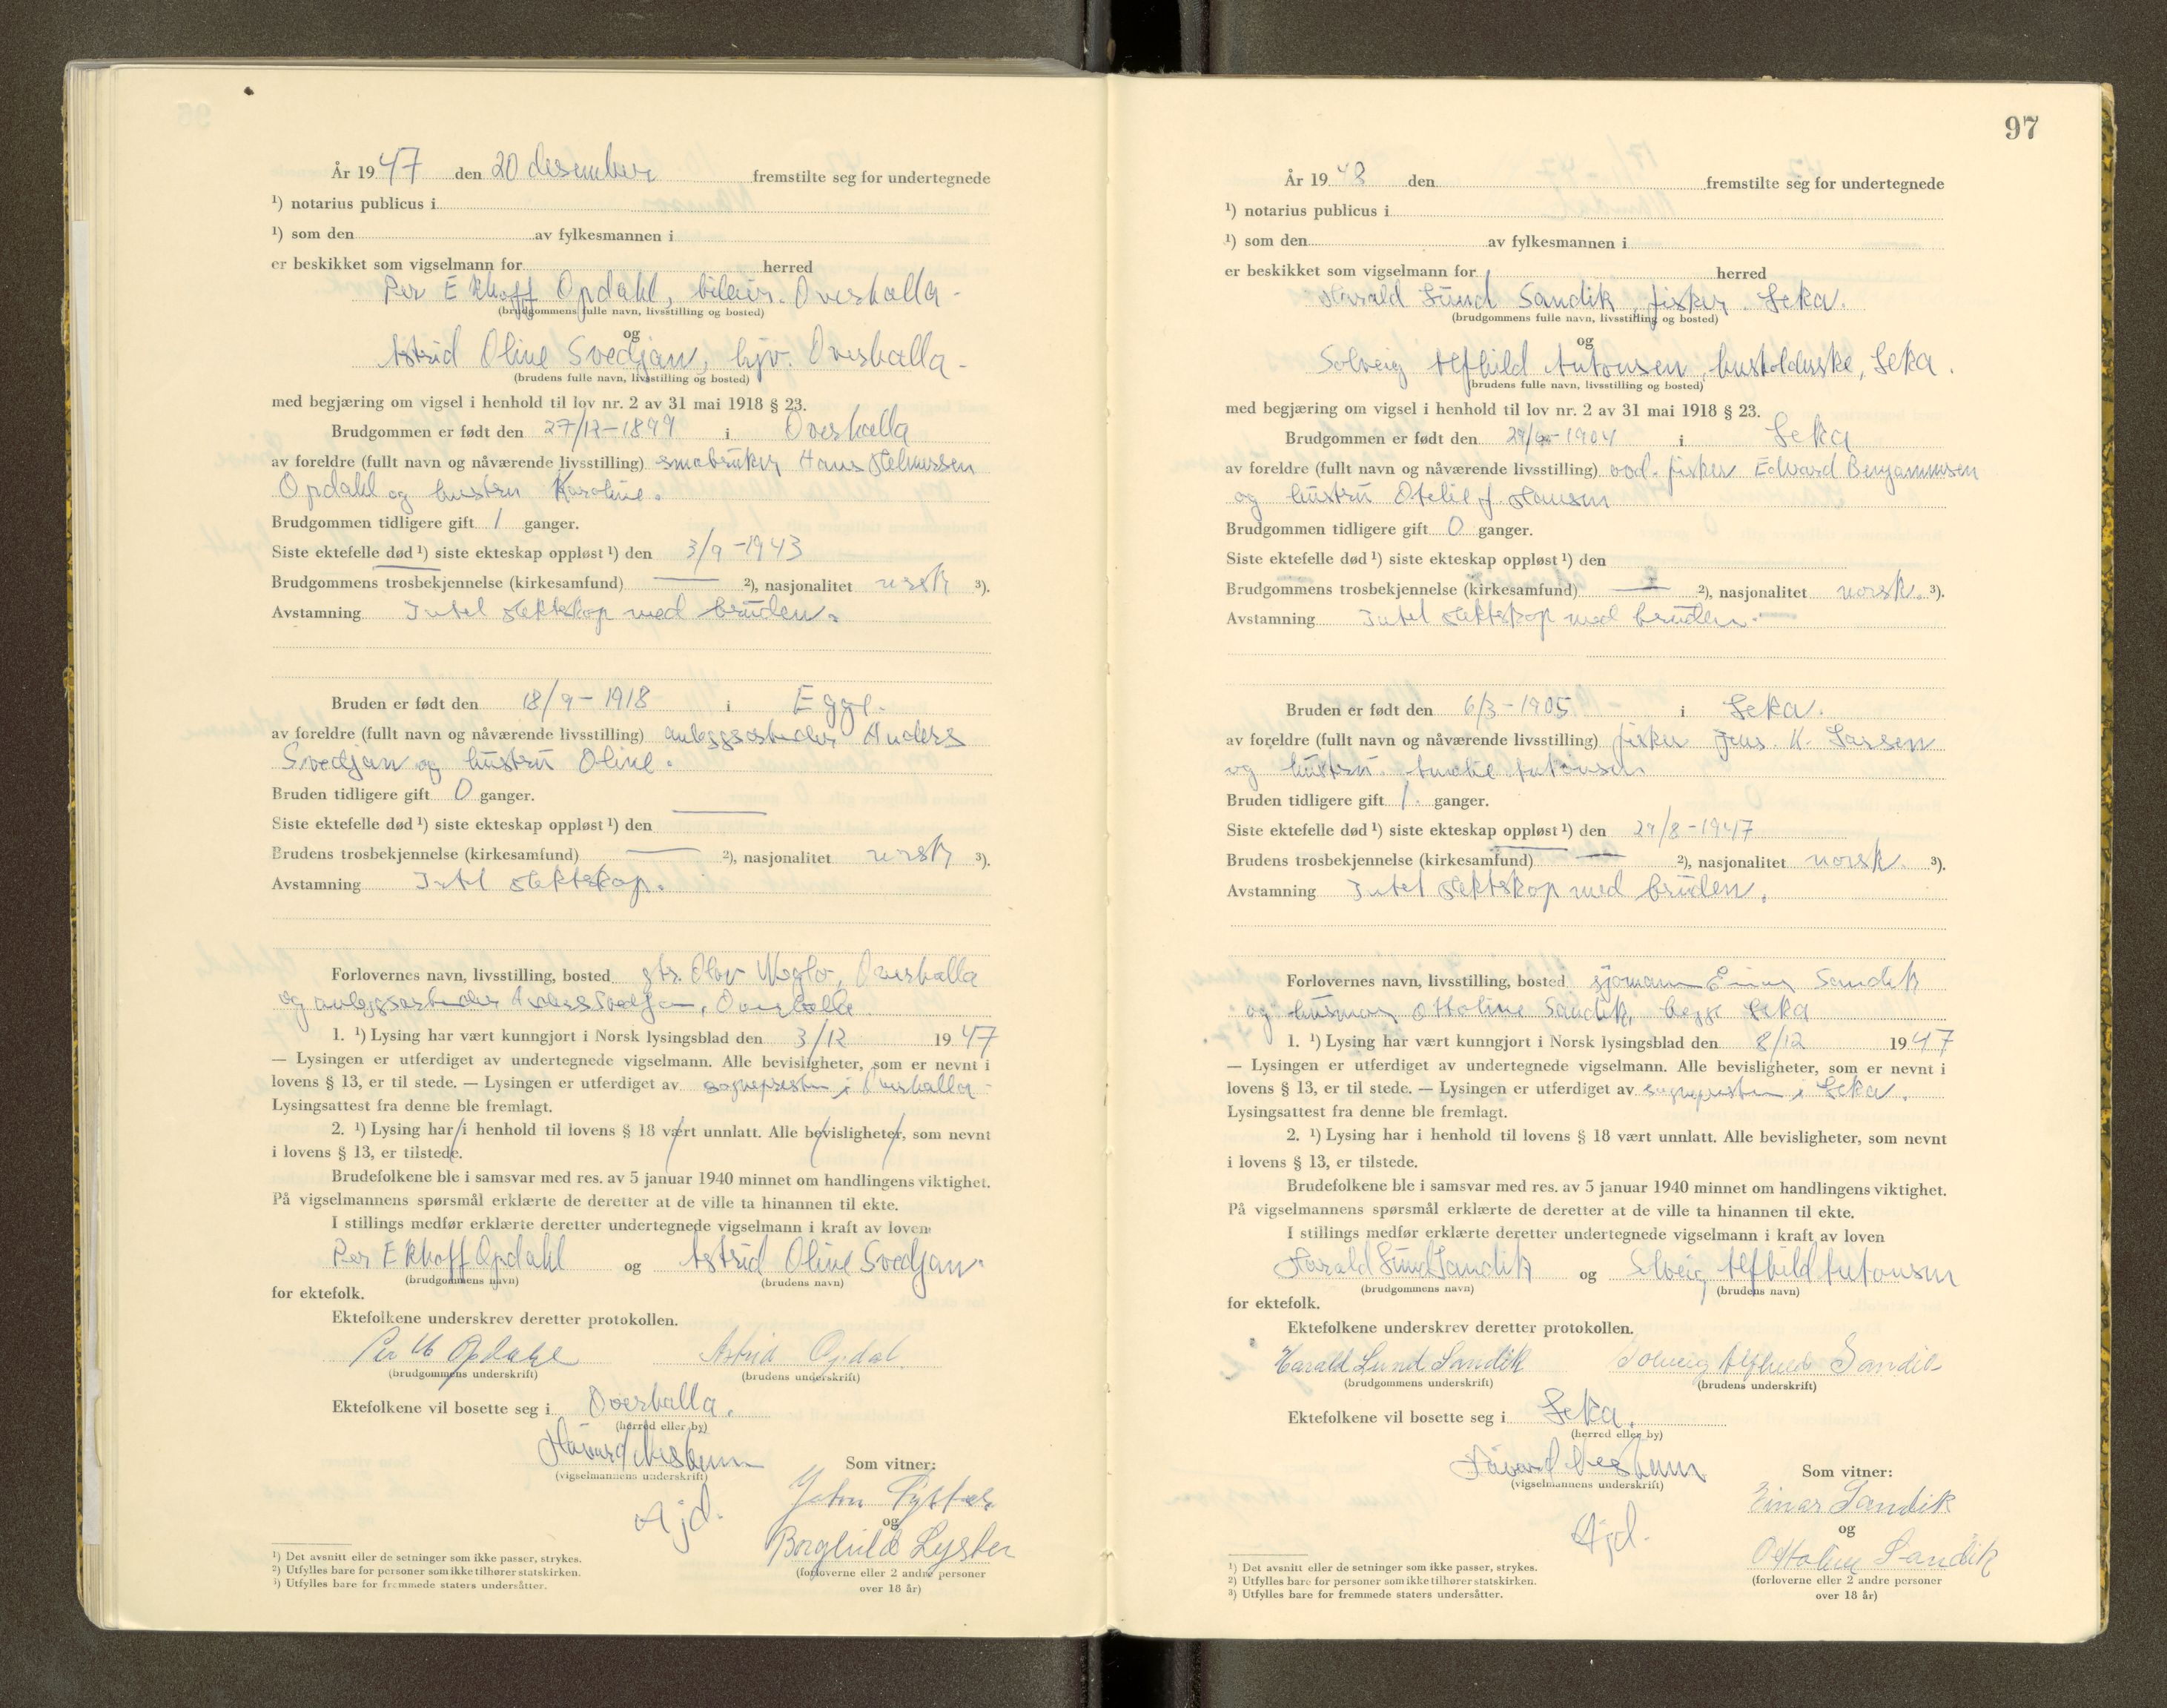 År 1947 den 20 desember fremstilte seg for undertegnede
¹) notarius publicus i
¹) som den av fylkesmannen i
er beskikket som vigselmann for herred
Per Ekhoff Opdahl, bileier. Overhalla -
(brudgommens fulle navn, livsstilling og bosted)
og
Astrid Oline Svedjan, hjv. Overhalla -
(brudens fulle navn, livsstilling og bosted)
med begjæring om vigsel i henhold til lov nr. 2 av 31 mai 1918 § 23.
Brudgommen er født den 27/12-1899 i Overhalla
av foreldre (fullt navn og nåværende livsstilling) småbruker Hans Helmersen
Opdahl og hustru Karoline.
Brudgommen tidligere gift 1 ganger.
Siste ektefelle død ¹) siste ekteskap oppløst ¹) den 3/9-1943
Brudgommens trosbekjennelse (kirkesamfund) — ²), nasjonalitet norsk ³).
Avstamning Intet slektskap med bruden.
Bruden er født den 18/9-1918 i Egge.
av foreldre (fullt navn og nåværende livsstilling) anleggsarbeider Anders
Svedjan og hustru Oline.
Bruden tidligere gift 0 ganger.
Siste ektefelle død ¹) siste ekteskap oppløst ¹) den —
Brudens trosbekjennelse (kirkesamfund) — ²), nasjonalitet norsk ³).
Avstamning Intet slektskap.
Forlovernes navn, livsstilling, bosted Olav Overhalla
og anleggsarbeider Anders Svedjan, Overhalla
1. ¹) Lysing har vært kunngjort i Norsk lysingsblad den 3/12 1947
— Lysingen er utferdiget av undertegnede vigselmann. Alle bevisligheter, som er nevnt i
lovens § 13, er til stede. — Lysingen er utferdiget av sognepresten i Overhalla -
Lysingsattest fra denne ble fremlagt.
2. ¹) Lysing har i henhold til lovens § 18 vært unnlatt. Alle bevisligheter, som nevnt
i lovens § 13, er tilstede.
Brudefolkene ble i samsvar med res. av 5 januar 1940 minnet om handlingens viktighet.
På vigselmannens spørsmål erklærte de deretter at de ville ta hinannen til ekte.
I stillings medfør erklærte deretter undertegnede vigselmann i kraft av loven
Per Ekhoff Opdahl og Astrid Oline Svedjan.
(brudgommens navn) (brudens navn)
for ektefolk.
Ektefolkene underskrev deretter protokollen.
Per Opdahl Astrid Opdal
(brudgommens underskrift) (brudens underskrift)
Ektefolkene vil bosette seg i Overhalla.
(herred eller by)
Håvard
(vigselmannens underskrift)
Som vitner:
John Lyster
og
Ajd.
Borghild Lyster
(forloverne eller 2 andre personer
over 18 år)
¹) Det avsnitt eller de setninger som ikke passer, strykes.
²) Utfylles bare for personer som ikke tilhører statskirken.
³) Utfylles bare for fremmede staters undersåtter.
97
År 1948 den fremstilte seg for undertegnede
¹) notarius publicus i
¹) som den av fylkesmannen i
er beskikket som vigselmann for herred
Harald Lund Sandik, fisker. Leka.
(brudgommens fulle navn, livsstilling og bosted)
og
Solveig Alfhild Antonsen, husholderske, Leka.
(brudens fulle navn, livsstilling og bosted)
med begjæring om vigsel i henhold til lov nr. 2 av 31 mai 1918 § 23.
Brudgommen er født den 1904 i Leka
av foreldre (fullt navn og nåværende livsstilling) fisker Edvard Benjaminsen
og hustru Otelie f. Hansen
Brudgommen tidligere gift 0 ganger.
Siste ektefelle død ¹) siste ekteskap oppløst ¹) den
Brudgommens trosbekjennelse (kirkesamfund) — ²), nasjonalitet norsk. ³).
Avstamning Intet slektskap med bruden. —
Bruden er født den 6/3-1905 i Leka.
av foreldre (fullt navn og nåværende livsstilling) fisker Jens. K. Larsen
og hustru Antonsen
Bruden tidligere gift 1. ganger.
Siste ektefelle død ¹) siste ekteskap oppløst ¹) den 29/8-1947
Brudens trosbekjennelse (kirkesamfund) — ²), nasjonalitet norsk. ³).
Avstamning Intet slektskap med bruden.
Forlovernes navn, livsstilling, bosted sjømann Einar Sandik
og husmor Ottoline Sandik, begge Leka
1. ¹) Lysing har vært kunngjort i Norsk lysingsblad den 8/12 1947
— Lysingen er utferdiget av undertegnede vigselmann. Alle bevisligheter, som er nevnt i
lovens § 13, er til stede. — Lysingen er utferdiget av sognepresten i Leka.
Lysingsattest fra denne ble fremlagt.
2. ¹) Lysing har i henhold til lovens § 18 vært unnlatt. Alle bevisligheter, som nevnt
i lovens § 13, er tilstede.
Brudefolkene ble i samsvar med res. av 5 januar 1940 minnet om handlingens viktighet.
På vigselmannens spørsmål erklærte de deretter at de ville ta hinannen til ekte.
I stillings medfør erklærte deretter undertegnede vigselmann i kraft av loven
Harald Lund Sandik og Solveig Alfhild Antonsen
(brudgommens navn) (brudens navn)
for ektefolk.
Ektefolkene underskrev deretter protokollen.
Harald Lund Sandik Solveig Alfhild Sandik
(brudgommens underskrift) (brudens underskrift)
Ektefolkene vil bosette seg i Leka.
(herred eller by)
Håvard
(vigselmannens underskrift)
Som vitner:
Einar Sandik
og
Ajd.
Ottoline Sandik
(forloverne eller 2 andre personer
over 18 år)
¹) Det avsnitt eller de setninger som ikke passer, strykes.
²) Utfylles bare for personer som ikke tilhører statskirken.
³) Utfylles bare for fremmede staters undersåtter.